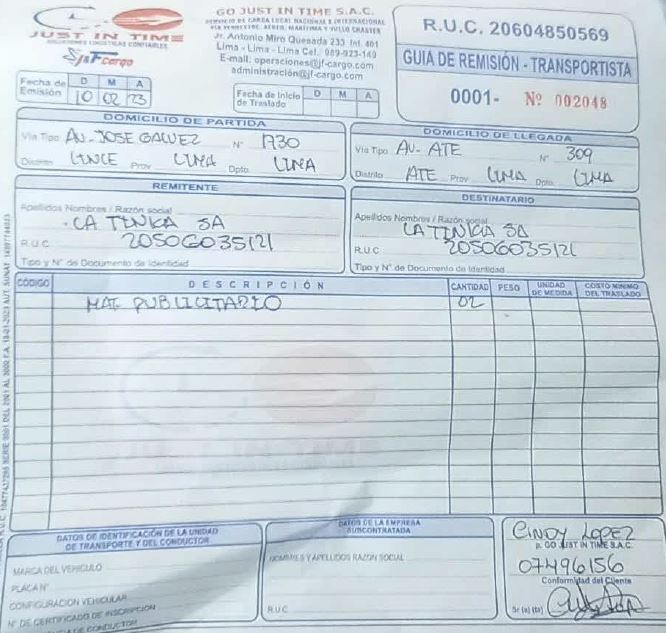 JUST IN TIME
SOLUCIONES LOGISTICAS CONFIABLES
J&F cargo
GO JUST IN TIME S.A.C.
SERVICIO DE CARGA LOCAL NACIONAL E INTERNACIONAL
VIA TERRESTRE, AEREO, MARITIMA Y VUELO CHARTER
Jr. Antonio Miro Quesada 233 Int. 401
Lima - Lima - Lima Cel. 989-923-149
E-mail: operaciones@jf-cargo.com
administración@jf-cargo.com
R.U.C. 20604850569
GUIA DE REMISIÓN - TRANSPORTISTA
0001- Nº 002048
Fecha de Emisión D M A
10 02 23
Fecha de Inicio de Traslado D M A
DOMICILIO DE PARTIDA
Vía Tipo AV. JOSE GALVEZ N° 1730
Distrito LINCE Prov LIMA Dpto LIMA
DOMICILIO DE LLEGADA
Vía Tipo AV. ATE N° 309
Distrito ATE Prov LIMA Dpto LIMA
REMITENTE
Apellidos Nombres / Razón social
LA TINKA SA
R.U.C 20506035121
Tipo y N° de Documento de Identidad
DESTINATARIO
Apellidos Nombres / Razón social
LA TINKA SA
R.U.C 20506035121
Tipo y N° de Documento de Identidad
CÓDIGO DESCRIPCIÓN CANTIDAD PESO UNIDAD DE MEDIDA COSTO MINIMO DEL TRASLADO
MAT PUBLICITARIO 02
DATOS DE IDENTIFICACIÓN DE LA UNIDAD
DE TRANSPORTE Y DEL CONDUCTOR
MARCA DEL VEHICULO
PLACA N°
CONFIGURACION VEHICULAR
N° DE CERTIFICADO DE INSCRIPCION
DATOS DE LA EMPRESA
SUBCONTRATADA
NOMBRES Y APELLIDOS RAZON SOCIAL
R.U.C
CINDY LOPEZ
p. GO JUST IN TIME S.A.C.
07496156
Conformidad del Cliente
Sr (a) (ta)